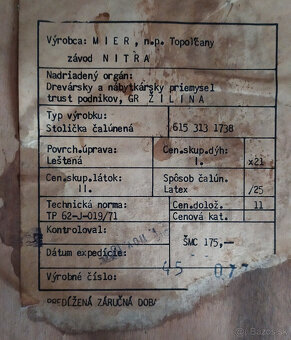 Výrobca: M I E R, n.p. Topoľčany
závod N I T R A
Nadriadený orgán:
Drevársky a nábytkársky priemysel
trust podnikov, GR Ž I L I N A
Typ výrobku:
Stolička čalúnená 615 313 1738
Povrch.úprava: Cen.skup.dýh:
Leštená I. x21
Cen.skup.látok: Spôsob čalún.
II. Latex /25
Technická norma: Cen.dolož. 11
TP 62-J-019/71 Cenová kat.
Kontroloval:
ŠMC 175,—
Dátum expedície:
Výrobné číslo: 45
PREDĹŽENÁ ZÁRUČNÁ DOBA
Bazos.sk